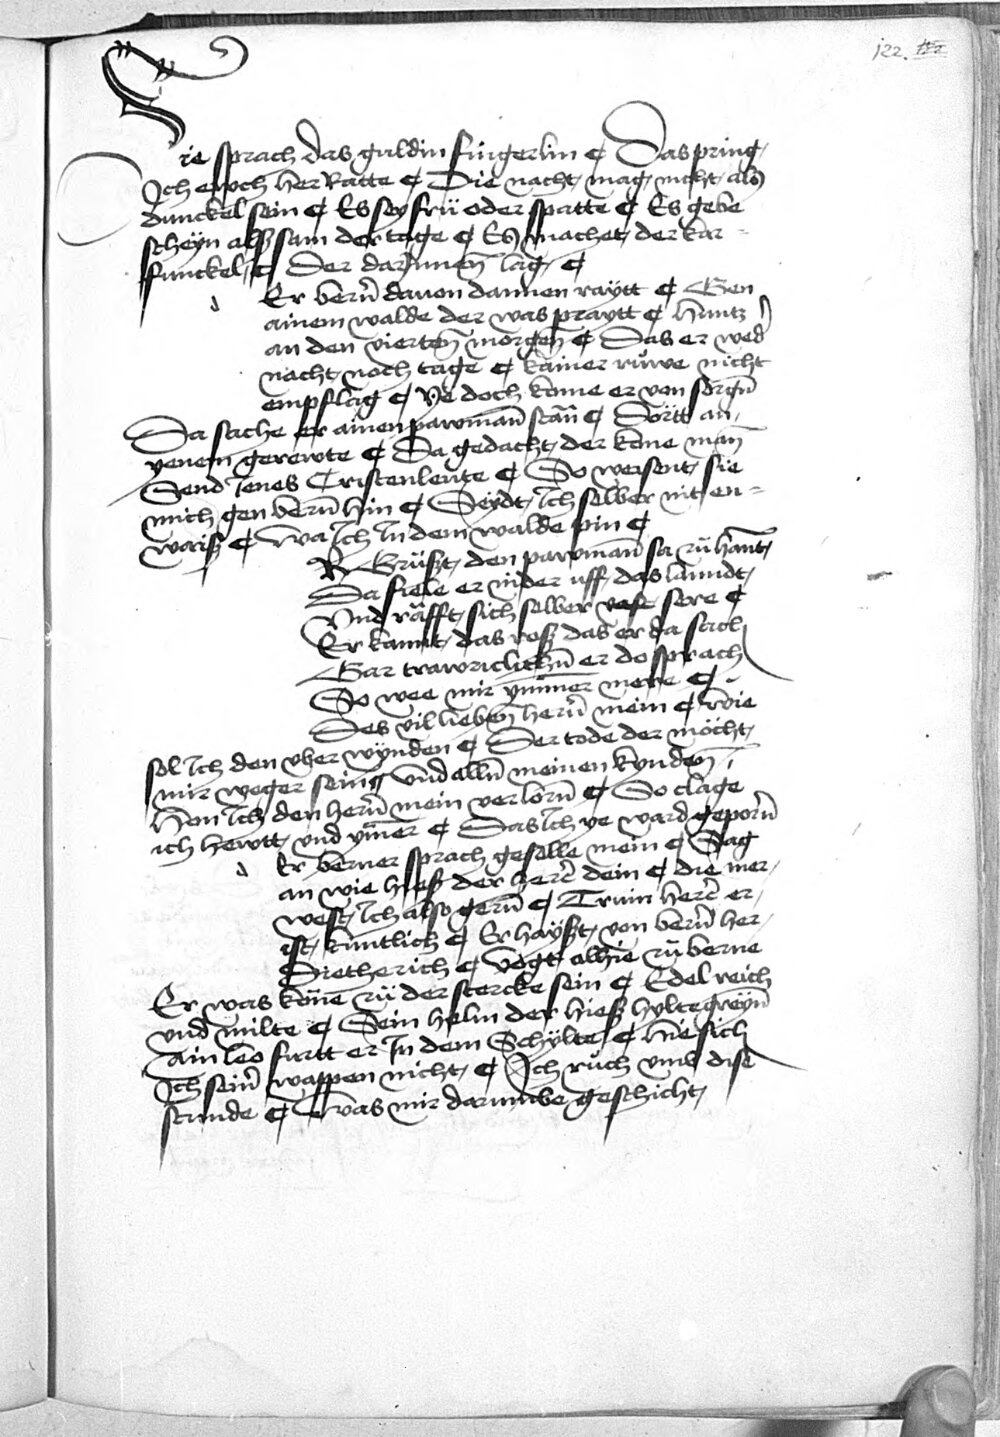 122.
Sie sprach das guldin fingerlin ¶ Das pring
Ich euch her Ratte ¶ Die nacht mag nicht als
dunckel sein ¶ Es sey frü oder spatte ¶ Es gebe
scheyn alß sam der tage ¶ Es machet der kar=
funckel ¶ Der darinnen lag ¶
d Er bern̄ dauon dannen raytt ¶ Gen
ainem walde der was praytt ¶ Huntz
an den vierten morgen ¶ Das er wed̄
nacht noch tage ¶ kainer růwe nicht
empflag ¶ Ye doch kome er von sorgn̄
Da sache er ainen pawman̄ stan̄ ¶ Dortt an
yenem gerewte ¶ Da gedacht der kone man
Send ienes Cristenleute ¶ So weisent sie
mich gen bern̄ hin ¶ Seydt ich selber nit en=
waiß ¶ Wa ich In dem walde pin ¶
R Grüßt den pawman̄ sa zů hant
Da fiele er nider uff das lanndt
Vnd räfft sich selber vast sere ¶
Er kannt das roß das er da sach
Gar trawriclichn̄ er do sprach
So wee mir ymmer mere ¶
Des vil lieben hern̄ mein ¶ wie
sol Ich den vber wynden ¶ Der tode der möcht
mir weger sein ¶ vnd alln̄ meinen kynden
Hon Ich den hern̄ mein verlorn̄ ¶ So clage
ich hewtt vnd ym̄er ¶ Das Ich ye ward geporn̄
d Er berner sprach geselle mein ¶ Sag
an wie hieß der here dein ¶ die mer
west Ich also gern̄ ¶ Truin here er
ist kuntlich ¶ Er hayßt von bern̄ her
Dietherich ¶ vogt alhie zů berne
Er was kön̄e zů der stercke sein ¶ Edel reich
vnd milte ¶ Sein helm der hieß hyltegreyn̄
Ain leo furtt er In dem Schylte ¶ hie sich
Ich sein̄ wappen nicht ¶ Ich růch vmb dise
stunde ¶ Was mir darumbe geschicht